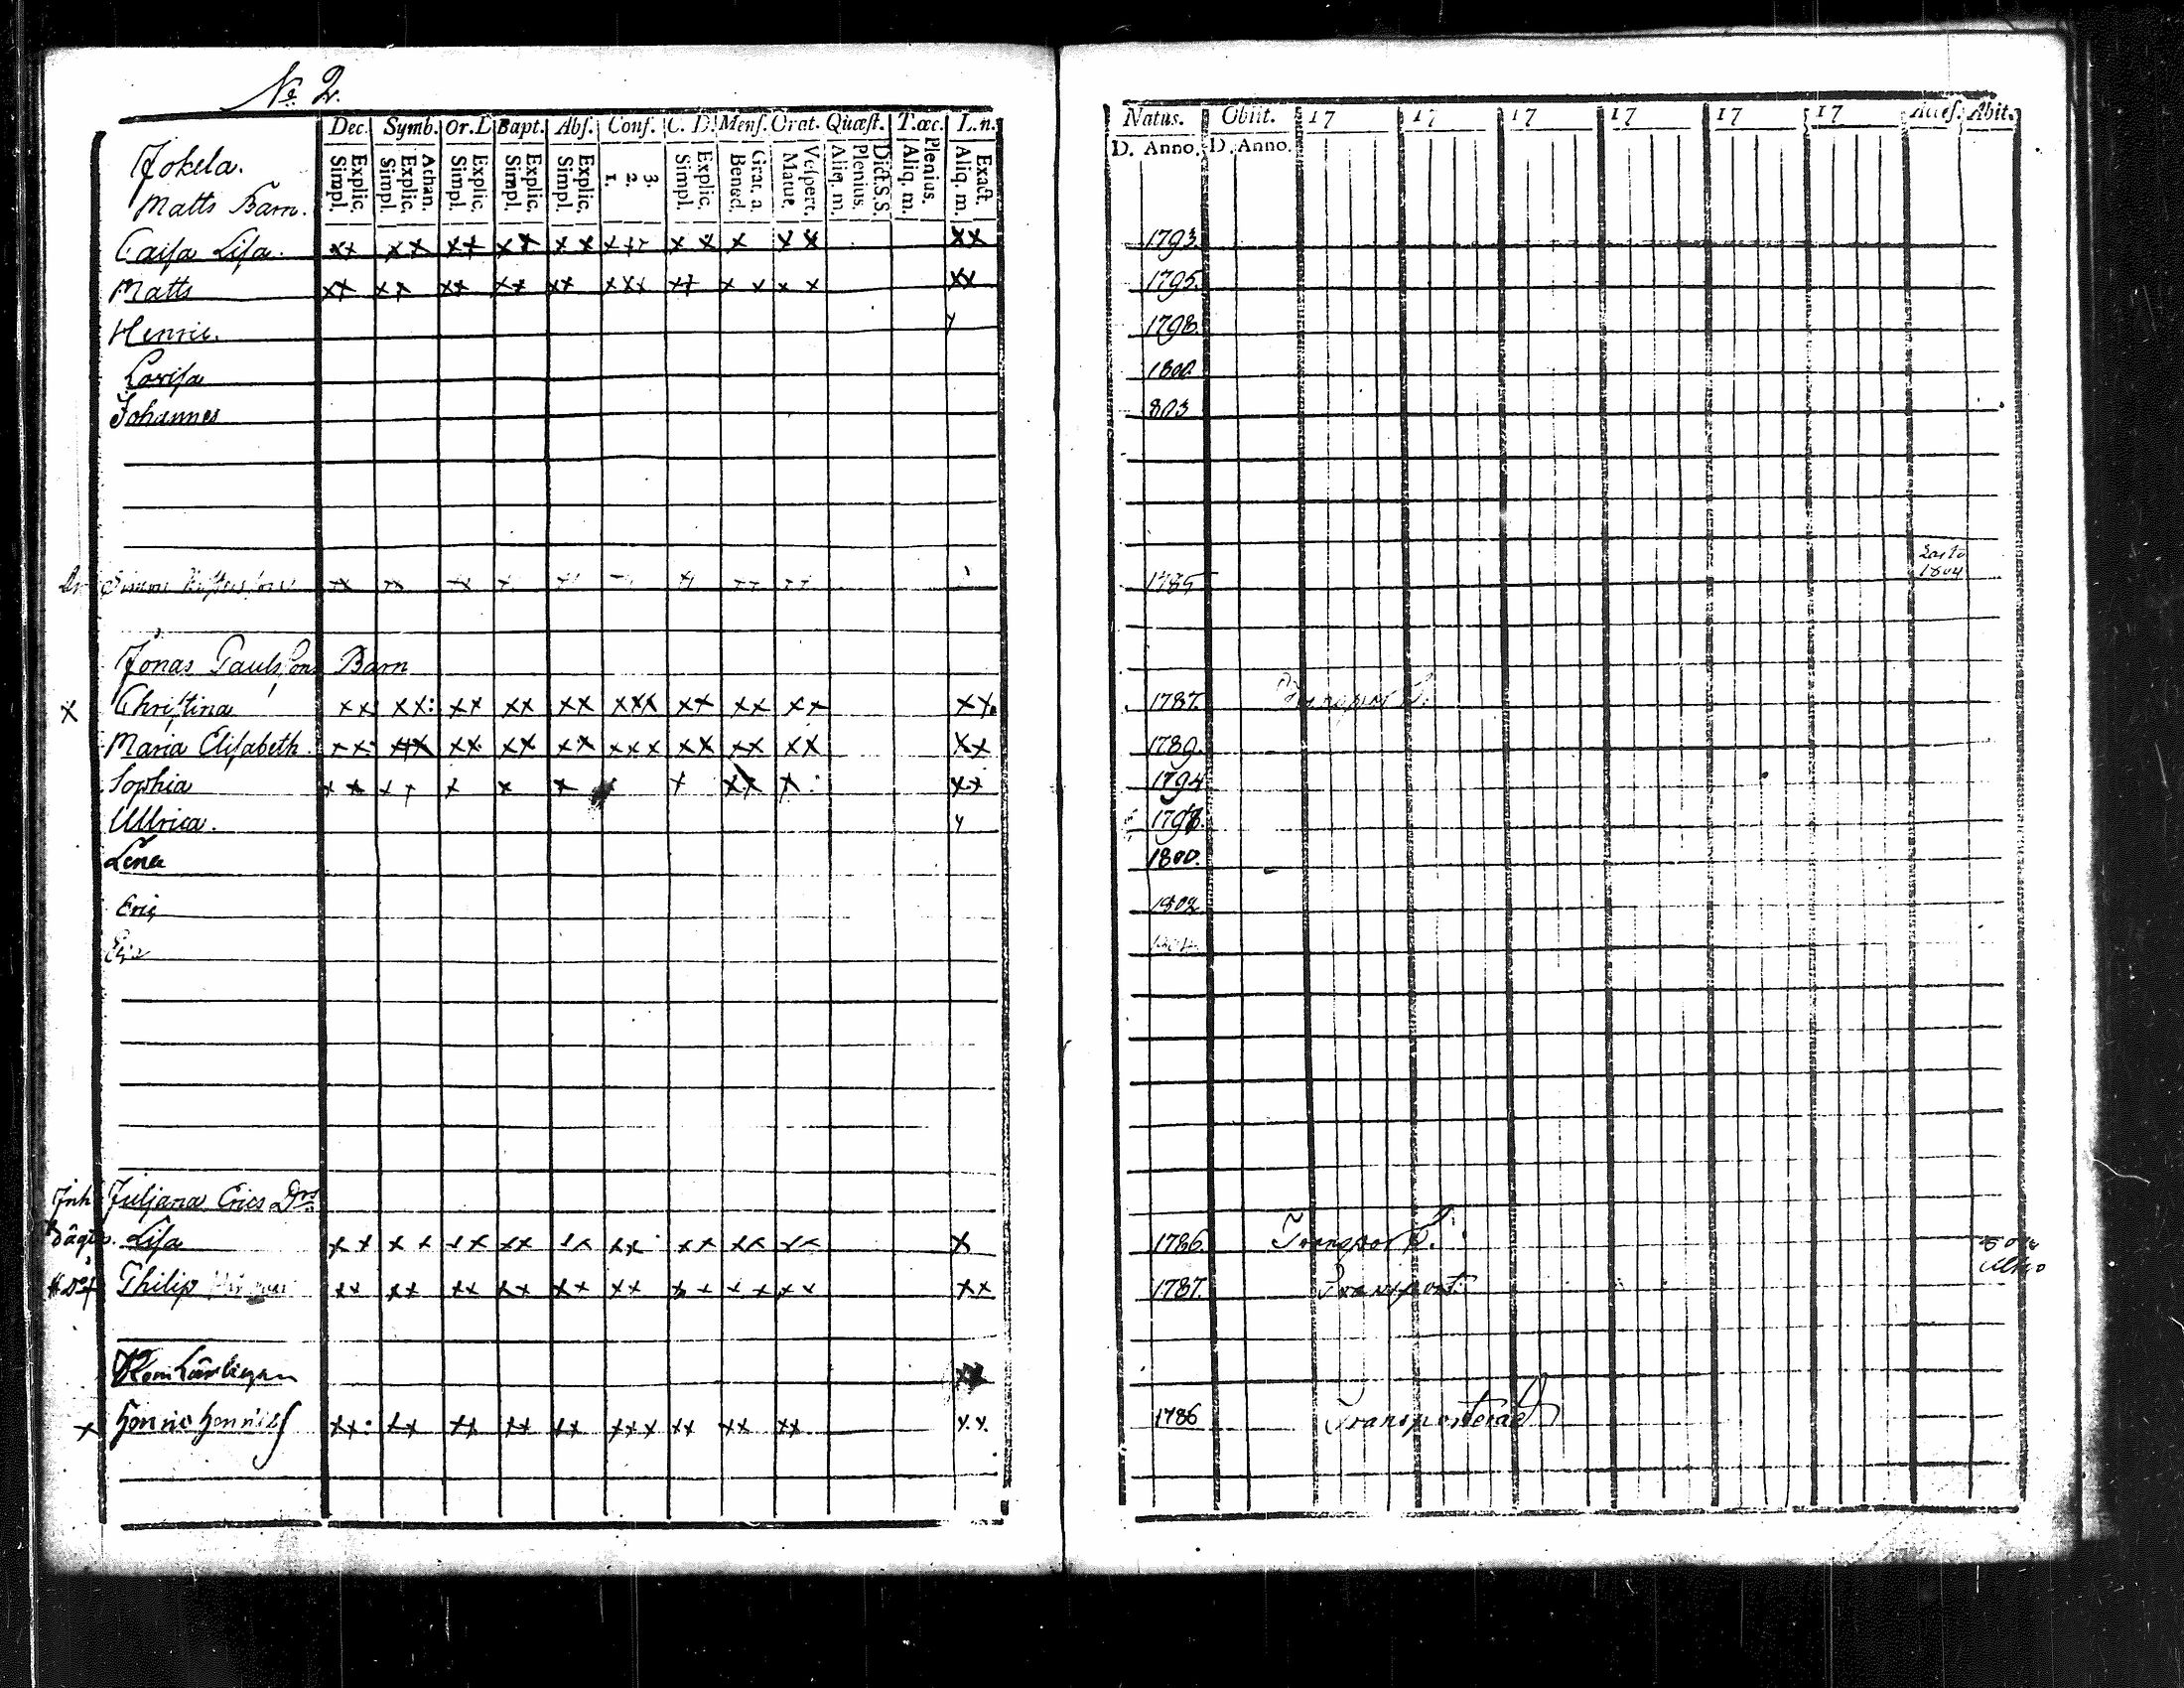 No 2.
Dec. Symb. Or.D Bapt. Abs. Conf. C. D. Mens. Orat. Quæst. T.œc. L.n.
Simpl. Explic. Simpl. Explic. Athan. Simpl. Explic. Simpl. Explic. Simpl. Explic. 1. 2. 3. Simpl. Explic. Bened. Grat. a. Matut. Vespert. Aliq. m. Plenius. Dict.S.S. Aliq. m. Plenius. Aliq. m. Exact.
Natus. Obiit. 17 17 17 17 17 17 Acces. Abit.
D. Anno. D. Anno.
Jokela.
Matts Barn.
Caisa Lisa. xx xx xx xx xx xxx xx x xx xx 1793.
Matts xx xx xx xx xx xxx xx xx xx xx 1795.
Henric. 1798.
Lovisa 1800.
Johannes 803
Simon xx xx xx x xx xx xx 1785 1804
Jonas Paulssons Barn
x Christina xx xx: xx xx xx xxx xx xx xx xx 1787.
Maria Elisabeth. xx xx xx xx xx xxx xx xx xx xx 1789.
Sophia xx xx x x x x x xx x xx 1794
Ullrica. 1798.
Lena 1800.
Eric 1802
Inh Juljana Erics Drs
Lisa xx xx xx xx xx xx xx xx xx x 1786. Transport.
Philip xx xx xx xx xx xx xx xx xx xx 1787. Transport:
x xx: xx xx xx xx xxx xx xx xx x.x. 1786 Transporterad